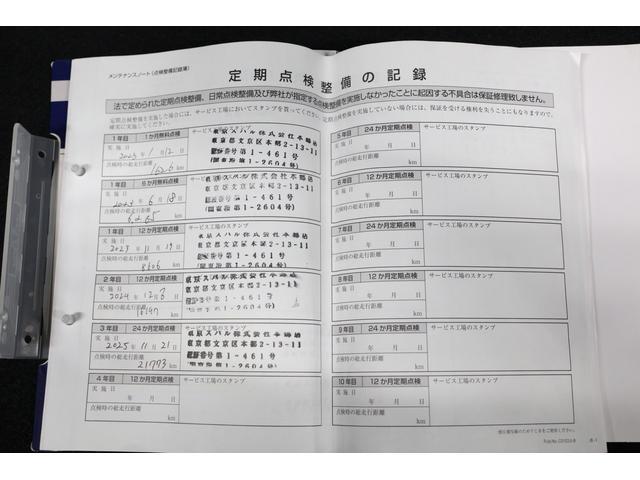 メンテナンスノート(点検整備記録簿)
定期点検整備の記録
法で定められた定期点検整備、日常点検整備及び弊社が指定する点検整備を実施しなかったことに起因する不具合は保証修理致しません。
定期点検整備を実施した場合には、サービス工場においてスタンプを買ってください。
定期点検整備を実施していない場合には、保証を受ける権利を失うことにもなりますので、
確実に実施してください。
1年目 1か月無料点検 サービス工場のスタンプ
実施日
2023年1月12日
点検時の総走行距離
km
東京スバル株式会社本郷店
東京都文京区本郷2-13-11
認証番号第1-461号
(関東指第1-2604号)
1年目 6か月無料点検 サービス工場のスタンプ
実施日
2023年6月18日
点検時の総走行距離
km
東京スバル株式会社本郷店
東京都文京区本郷2-13-11
認証番号第1-461号
(関東指第1-2604号)
1年目 12か月定期点検 サービス工場のスタンプ
実施日
2023年11月19日
点検時の総走行距離
8606 km
東京スバル株式会社本郷店
東京都文京区本郷2-13-11
認証番号第1-461号
(関東指第1-2604号)
2年目 12か月定期点検 サービス工場のスタンプ
実施日
2024年12月8日
点検時の総走行距離
km
東京スバル株式会社本郷店
東京都文京区本郷2-13-11
認証番号第1-461号
(関東指第1-2604号)
3年目 24か月定期点検 サービス工場のスタンプ
実施日
2025年11月21日
点検時の総走行距離
21773 km
東京スバル株式会社本郷店
東京都文京区本郷2-13-11
認証番号第1-461号
(関東指第1-2604号)
4年目 12か月定期点検 サービス工場のスタンプ
実施日
年 月 日
点検時の総走行距離
km
5年目 24か月定期点検 サービス工場のスタンプ
実施日
年 月 日
点検時の総走行距離
km
6年目 12か月定期点検 サービス工場のスタンプ
実施日
年 月 日
点検時の総走行距離
km
7年目 24か月定期点検 サービス工場のスタンプ
実施日
年 月 日
点検時の総走行距離
km
8年目 12か月定期点検 サービス工場のスタンプ
実施日
年 月 日
点検時の総走行距離
km
9年目 24か月定期点検 サービス工場のスタンプ
実施日
年 月 日
点検時の総走行距離
km
10年目 12か月定期点検 サービス工場のスタンプ
実施日
年 月 日
点検時の総走行距離
km